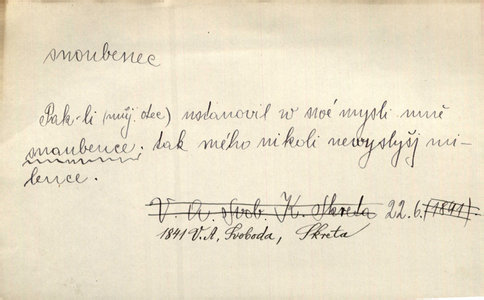 snoubenec
Pak-li (můj otec) ustanovil w swé mysli mně
snoubence, tak mého nikoli newyslyšj mi-
lence.
V. A. Svob. K. Skreta 22.6. (1841)
1841 V. A. Svoboda, Skreta